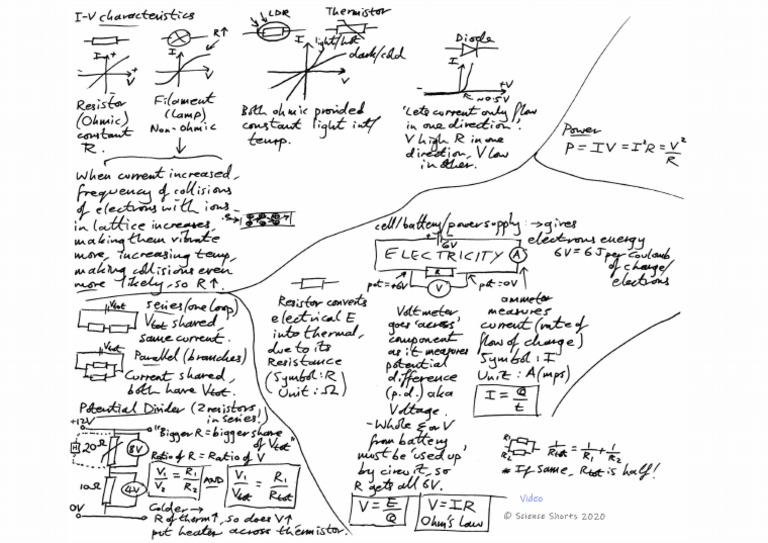 I-V characteristics
R↑
I +
+
V
I
V
Resistor
(Ohmic)
constant
R.
Filament
(Lamp)
Non-ohmic
LDR
Thermistor
I
light/hot
dark/cold
V
Both ohmic provided
constant light int/
temp.
Diode
I
+V
~0.5V
'Lets current only flow
in one direction'.
V high R in one
direction, V low
in other.
Power
P = IV = I²R = V²/R
When current increased,
frequency of collisions
of electrons with ions
in lattice increases,
making them vibrate
more, increasing temp,
making collisions even
more likely, so R↑.
cell/battery/power supply: → gives
electrons energy
6V = 6J per coulomb
of charge/
electrons
6V
ELECTRICITY
A
R
V
pot=+6V
pot=0V
Vtot
series (one loop)
Vtot shared,
same current.
Vtot
Parallel (branches)
Current shared,
both have Vtot.
Resistor converts
electrical E
into thermal,
due to its
Resistance
(Symbol: R
Unit: Ω)
Voltmeter
goes 'across'
component
as it measures
potential
difference
(p.d.) aka
Voltage.
- Whole E or V
from battery
must be 'used up'
by circuit, so
R gets all 6V.
V = E/Q
V = IR
Ohm's Law
ammeter
measures
current (rate of
flow of charge)
Symbol: I
Unit: A(mps)
I = Q/t
Potential Divider (2 resistors
in series!)
+12V
"Bigger R = bigger share
of Vtot"
H
20Ω
8V
Ratio of R = Ratio of V
V1/V2 = R1/R2
AND
V1/Vtot = R1/Rtot
10Ω
4V
0V
Colder →
R of therm↑, so does V↑
put heater across thermistor.
R1
R2
1/Rtot = 1/R1 + 1/R2
* If same, Rtot is half!
Video
© Science Shorts 2020